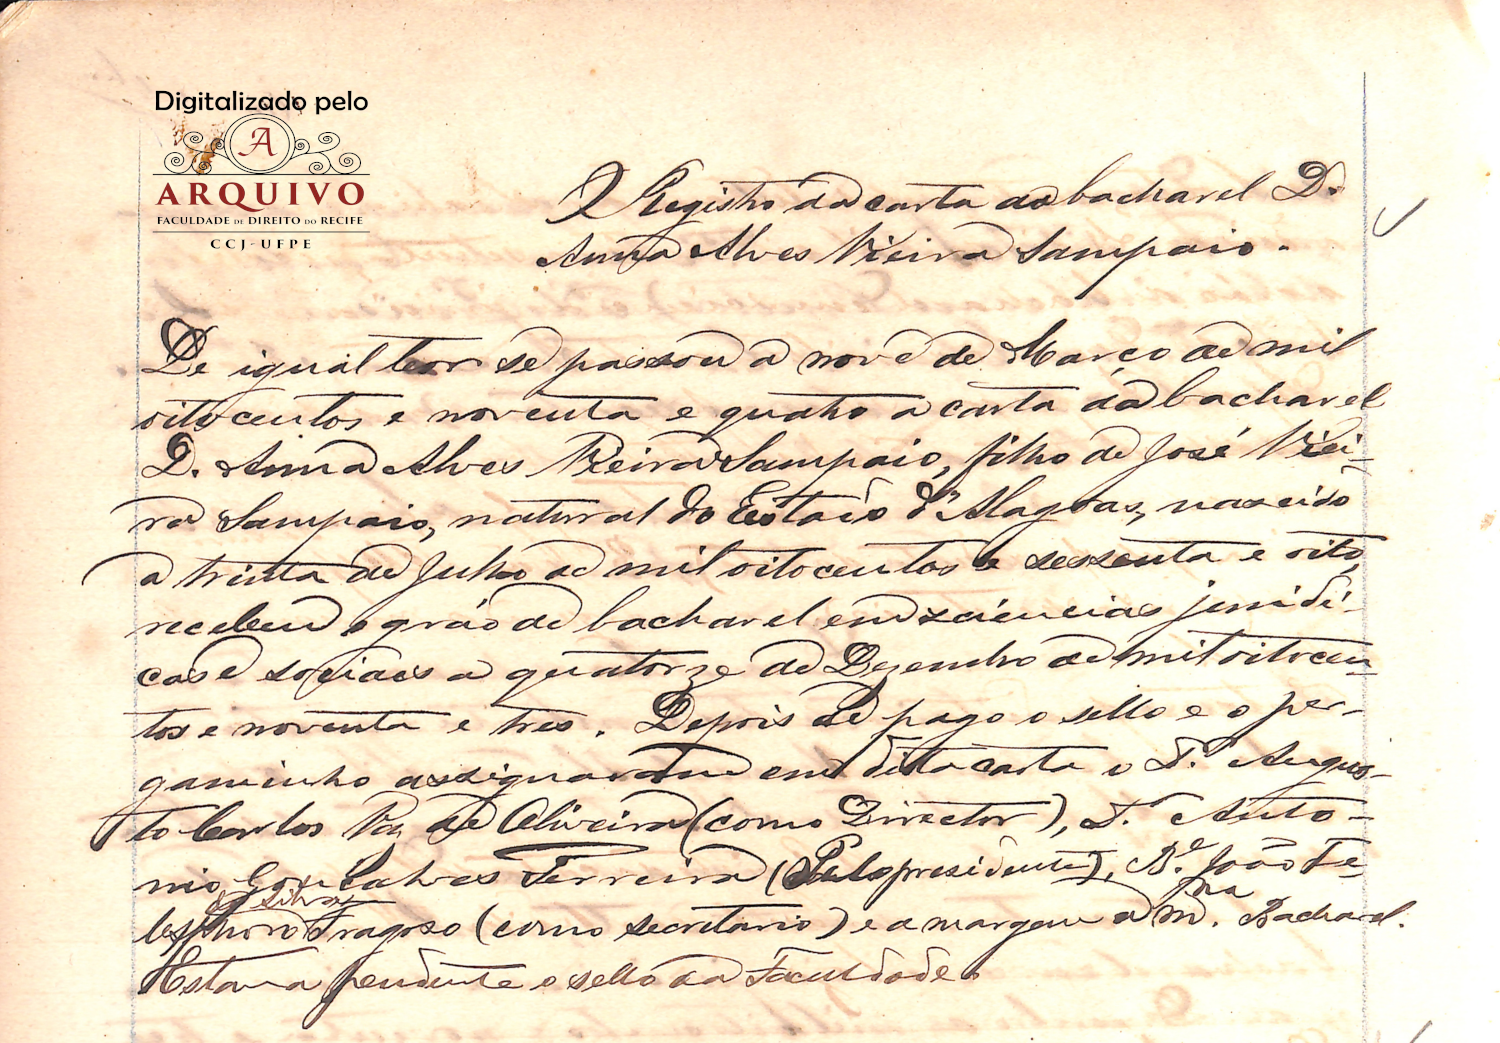 Digitalizado pelo
A
ARQUIVO
FACULDADE DE DIREITO DO RECIFE
CCJ-UFPE
Registro da carta do bacharel D.
Anna Alves Vieira Sampaio.
De igual teor se passou a nove de Março de mil
oitocentos e noventa e quatro a carta da bacharel
D. Anna Alves Vieira Sampaio, filho de José Viei-
ra Sampaio, natural do Estado d'Alagoas, nascido
a trinta de Julho de mil oitocentos e sessenta e oito,
recebeu o gráo de bacharel em sciencias juridi-
cas e sociaes a quatorze de Dezembro de mil oitocen-
tos e noventa e tres. Depois de pago o sello e o per-
gaminho assignaram em dita carta o Dr. Augus-
to Carlos Vaz de Oliveira (como Director), Dr. Anto-
nio Gonçalves Ferreira (Pelo presidente), B.el João Te-
lesphoro da Silva Fragoso (como secretario) e a margem a m.ma Bacharel.
Estava pendente o sello da Faculdade.